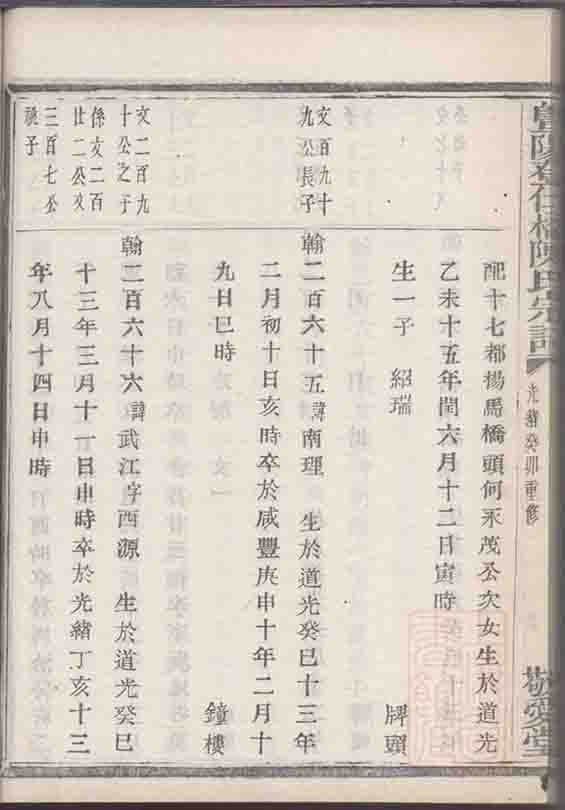 暨陽仁陳氏宗譜
光緒癸卯重修
敬愛堂
配十七都楊馬橋頭何永茂公次女生於道光
乙未十五年閏六月十二日寅時
生一子 紹瑞 牌頭
文百九十
九公長子
翰二百六十五諱南理 生於道光癸巳十三年
二月初十日亥時卒於咸豐庚申十年二月十
九日巳時 鐘樓
文二百九
十公之子
係文二百
廿二公文
三百七公
祧子
翰二百六十六諱武江字西源 生於道光癸巳
十三年三月十一日申時卒於光緒丁亥十三
年八月十四日申時